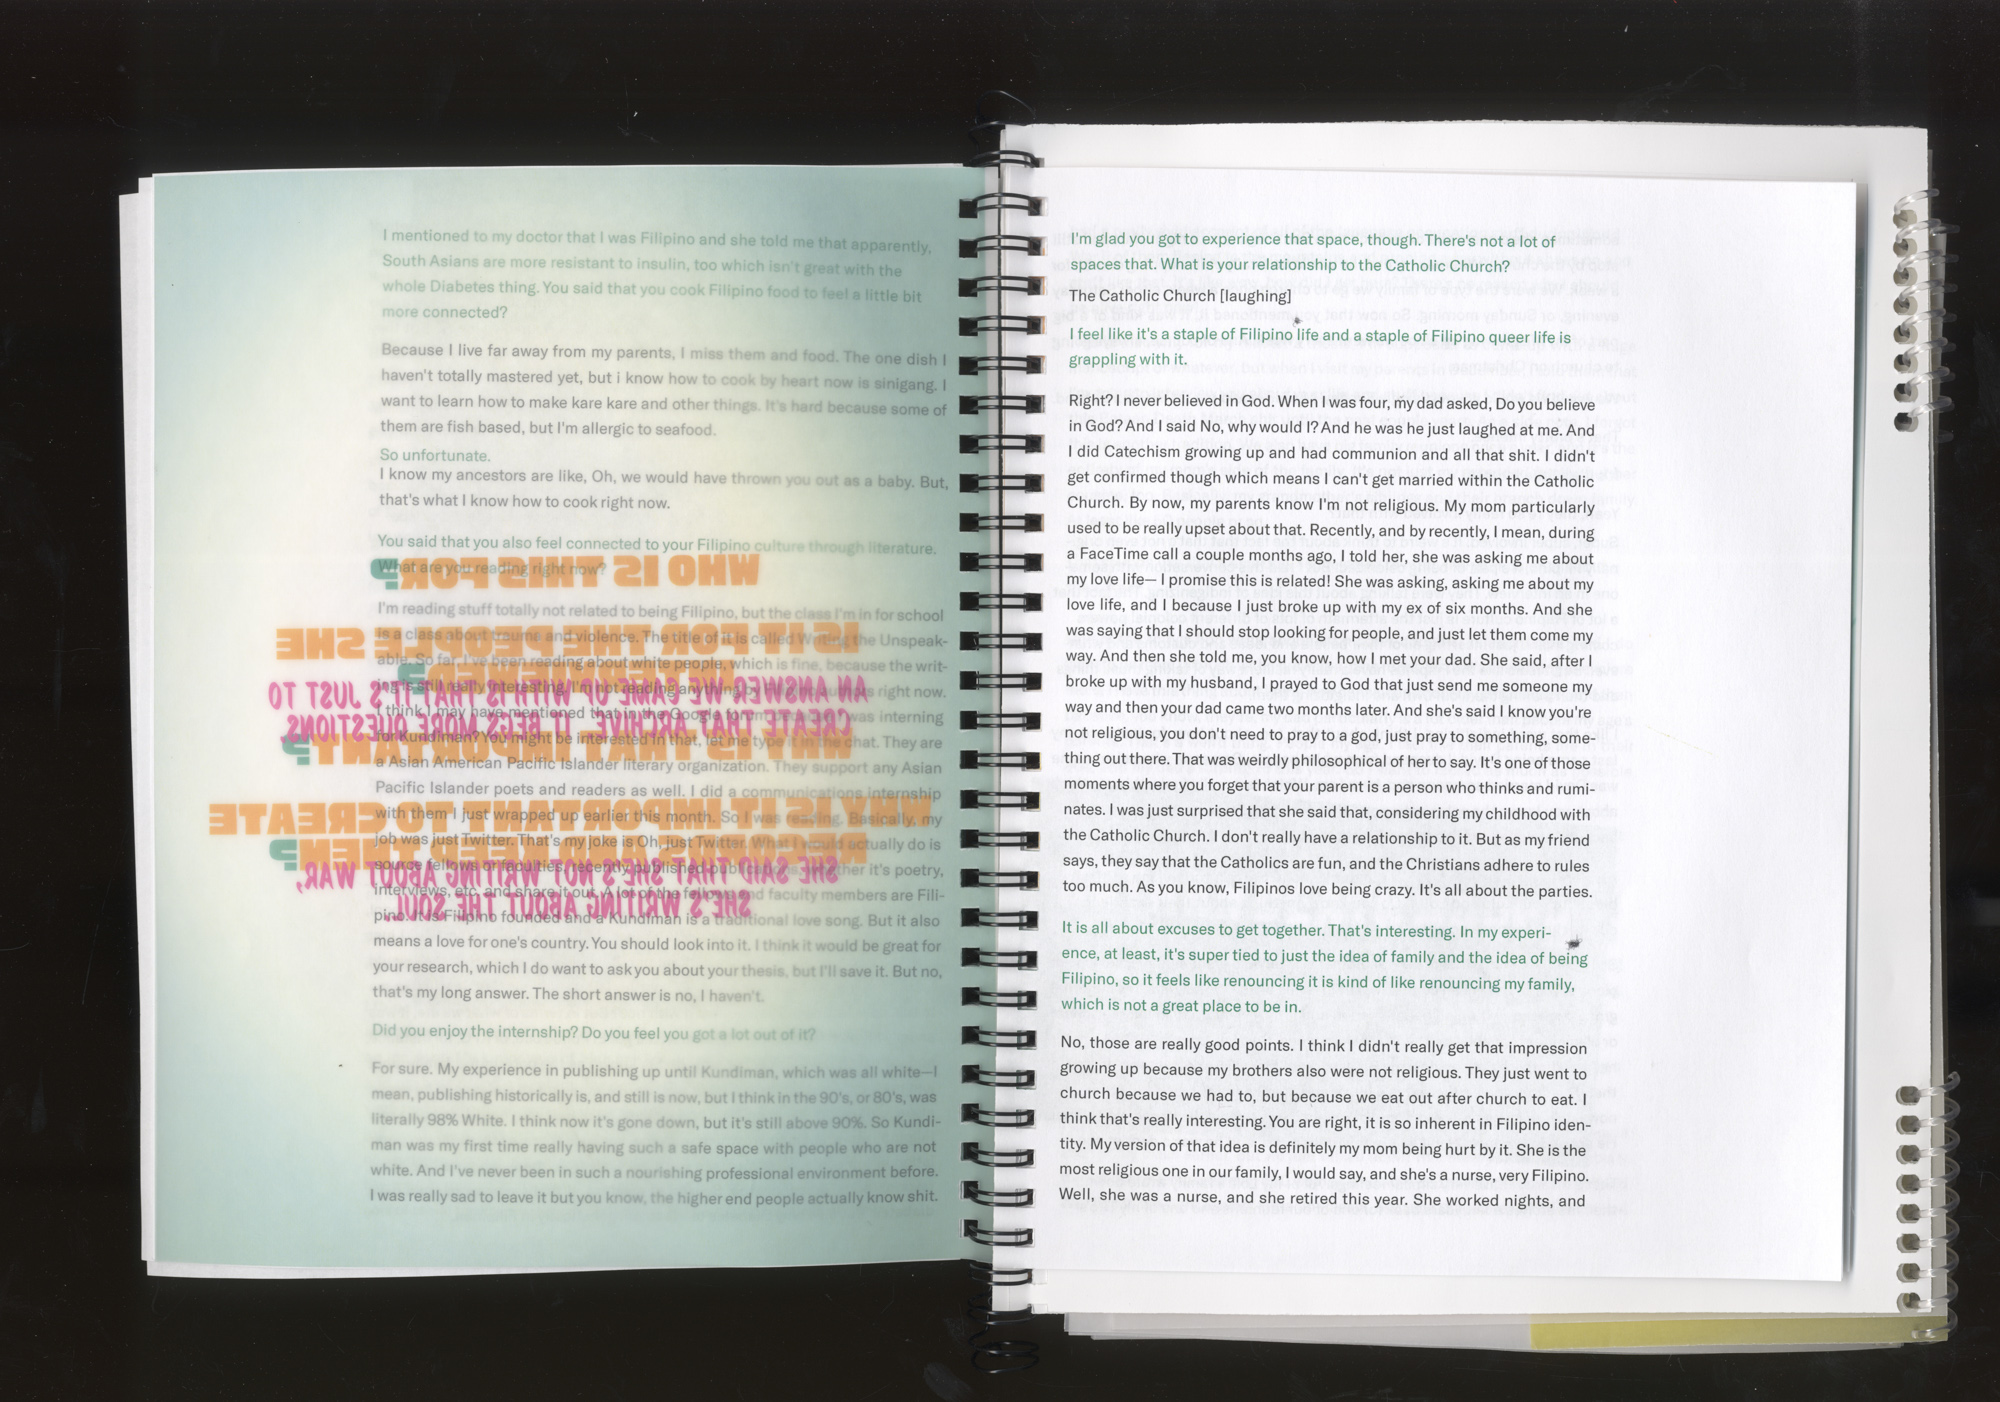 I mentioned to my doctor that I was Filipino and she told me that apparently,
South Asians are more resistant to insulin, too which isn't great with the
whole Diabetes thing. You said that you cook Filipino food to feel a little bit
more connected?
Because I live far away from my parents, I miss them and food. The one dish I
haven't totally mastered yet, but i know how to cook by heart now is sinigang. I
want to learn how to make kare kare and other things. It's hard because some of
them are fish based, but I'm allergic to seafood.
So unfortunate.
I know my ancestors are like, Oh, we would have thrown you out as a baby. But,
that's what I know how to cook right now.
You said that you also feel connected to your Filipino culture through literature.
What are you reading right now?
WHO IS THIS FOR?
I'm reading stuff totally not related to being Filipino, but the class I'm in for school
is a class about trauma and violence. The title of it is called Writing the Unspeak-
IS IT FOR THE PEOPLE SHE
able. So far, I've been reading about white people, which is fine, because the writ-
ing is still really interesting. I'm not reading anything by Filipino authors right now.
AN ANSWER WE CAME UP WITH IS THAT IT'S JUST TO
I think I may have mentioned that in the Google form because I was interning
CREATE THAT ARCHIVE. IT BEGS MORE QUESTIONS,
for Kundiman? You might be interested in that, let me type it in the chat. They are
WHY IS THAT IMPORTANT?
a Asian American Pacific Islander literary organization. They support any Asian
Pacific Islander poets and readers as well. I did a communications internship
WHY IS IT IMPORTANT TO CREATE
with them I just wrapped up earlier this month. So I was reading. Basically, my
job was just Twitter. That's my joke is Oh, just Twitter. What I would actually do is
source fellows or faculties, recently published publications, whether it's poetry,
SHE SAID THAT SHE'S NOT WRITING ABOUT WAR,
interviews, etc. and share it out. A lot of the fellows and faculty members are Fili-
SHE'S WRITING ABOUT THE SOUL.
pino. It is Filipino founded and a Kundiman is a traditional love song. But it also
means a love for one's country. You should look into it. I think it would be great for
your research, which I do want to ask you about your thesis, but I'll save it. But no,
that's my long answer. The short answer is no, I haven't.
Did you enjoy the internship? Do you feel you got a lot out of it?
For sure. My experience in publishing up until Kundiman, which was all white—I
mean, publishing historically is, and still is now, but I think in the 90's, or 80's, was
literally 98% White. I think now it's gone down, but it's still above 90%. So Kundi-
man was my first time really having such a safe space with people who are not
white. And I've never been in such a nourishing professional environment before.
I was really sad to leave it but you know, the higher end people actually know shit.
I'm glad you got to experience that space, though. There's not a lot of
spaces that. What is your relationship to the Catholic Church?
The Catholic Church [laughing]
I feel like it's a staple of Filipino life and a staple of Filipino queer life is
grappling with it.
Right? I never believed in God. When I was four, my dad asked, Do you believe
in God? And I said No, why would I? And he was he just laughed at me. And
I did Catechism growing up and had communion and all that shit. I didn't
get confirmed though which means I can't get married within the Catholic
Church. By now, my parents know I'm not religious. My mom particularly
used to be really upset about that. Recently, and by recently, I mean, during
a FaceTime call a couple months ago, I told her, she was asking me about
my love life— I promise this is related! She was asking, asking me about my
love life, and I because I just broke up with my ex of six months. And she
was saying that I should stop looking for people, and just let them come my
way. And then she told me, you know, how I met your dad. She said, after I
broke up with my husband, I prayed to God that just send me someone my
way and then your dad came two months later. And she's said I know you're
not religious, you don't need to pray to a god, just pray to something, some-
thing out there. That was weirdly philosophical of her to say. It's one of those
moments where you forget that your parent is a person who thinks and rumi-
nates. I was just surprised that she said that, considering my childhood with
the Catholic Church. I don't really have a relationship to it. But as my friend
says, they say that the Catholics are fun, and the Christians adhere to rules
too much. As you know, Filipinos love being crazy. It's all about the parties.
It is all about excuses to get together. That's interesting. In my experi-
ence, at least, it's super tied to just the idea of family and the idea of being
Filipino, so it feels like renouncing it is kind of like renouncing my family,
which is not a great place to be in.
No, those are really good points. I think I didn't really get that impression
growing up because my brothers also were not religious. They just went to
church because we had to, but because we eat out after church to eat. I
think that's really interesting. You are right, it is so inherent in Filipino iden-
tity. My version of that idea is definitely my mom being hurt by it. She is the
most religious one in our family, I would say, and she's a nurse, very Filipino.
Well, she was a nurse, and she retired this year. She worked nights, and